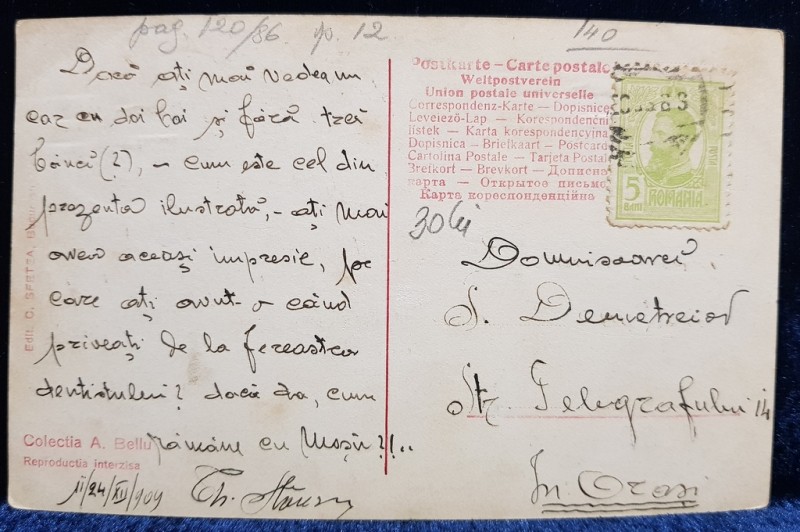 pag. 120/86. p. 12
140
Dacă ați mai vedea un
car cu doi boi și fără trei
(?), – cum este cel din
prezenta ilustrată, – ați mai
avea aceași impresie, pe
care ați avut-o când
priveați de la fereastra
dentistului? dacă da, cum
rămâne cu Moșii?!..
Th.
Colectia A. Bellu
Reproductia interzisa
Edit. D.
Postkarte – Carte postale
Weltpostverein
Union postale universelle
Correspondenz-Karte – Dopisnice
Levelező-Lap – Korespondenční
lístek – Karta korespondencyjna
Dopisnica – Briefkaart – Postcard
Cartolina Postale – Tarjeta Postal
Brefkort – Brevkort – Дописна
карта – Открытое письмо
Карта кореспонденційна
5
BANI
ROMANIA
30 lei
Domnisoarei,
S. Demetreiad
Str. Telegrafului 14
In Oraș